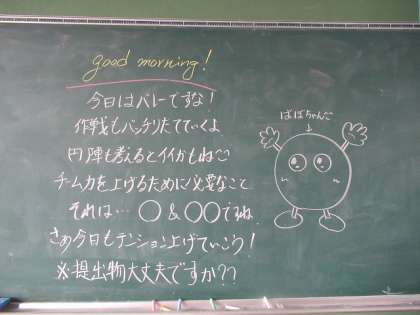 good morning!
今日はバレーですな!
作戦もバッチリたてていくよ
円陣も考えるとイイかもね〜
チーム力を上げるために必要なこと
それは…○&○○ですね
さぁ今日もテンション上げていこう!
※提出物大丈夫ですか??
ばばちゃん
↓